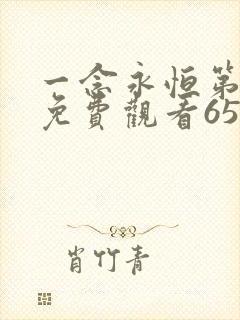 一念永恒第
免費觀看65
肖竹青